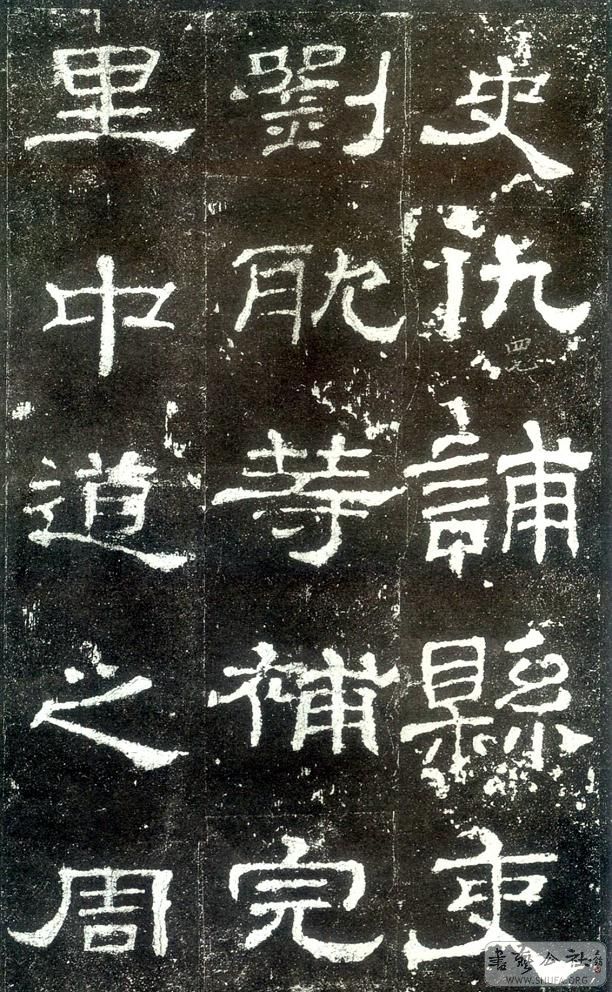 史仇誧縣吏
劉耽等補完
里中道之周
四九
書法公社
WWW.SHUFA.ORG